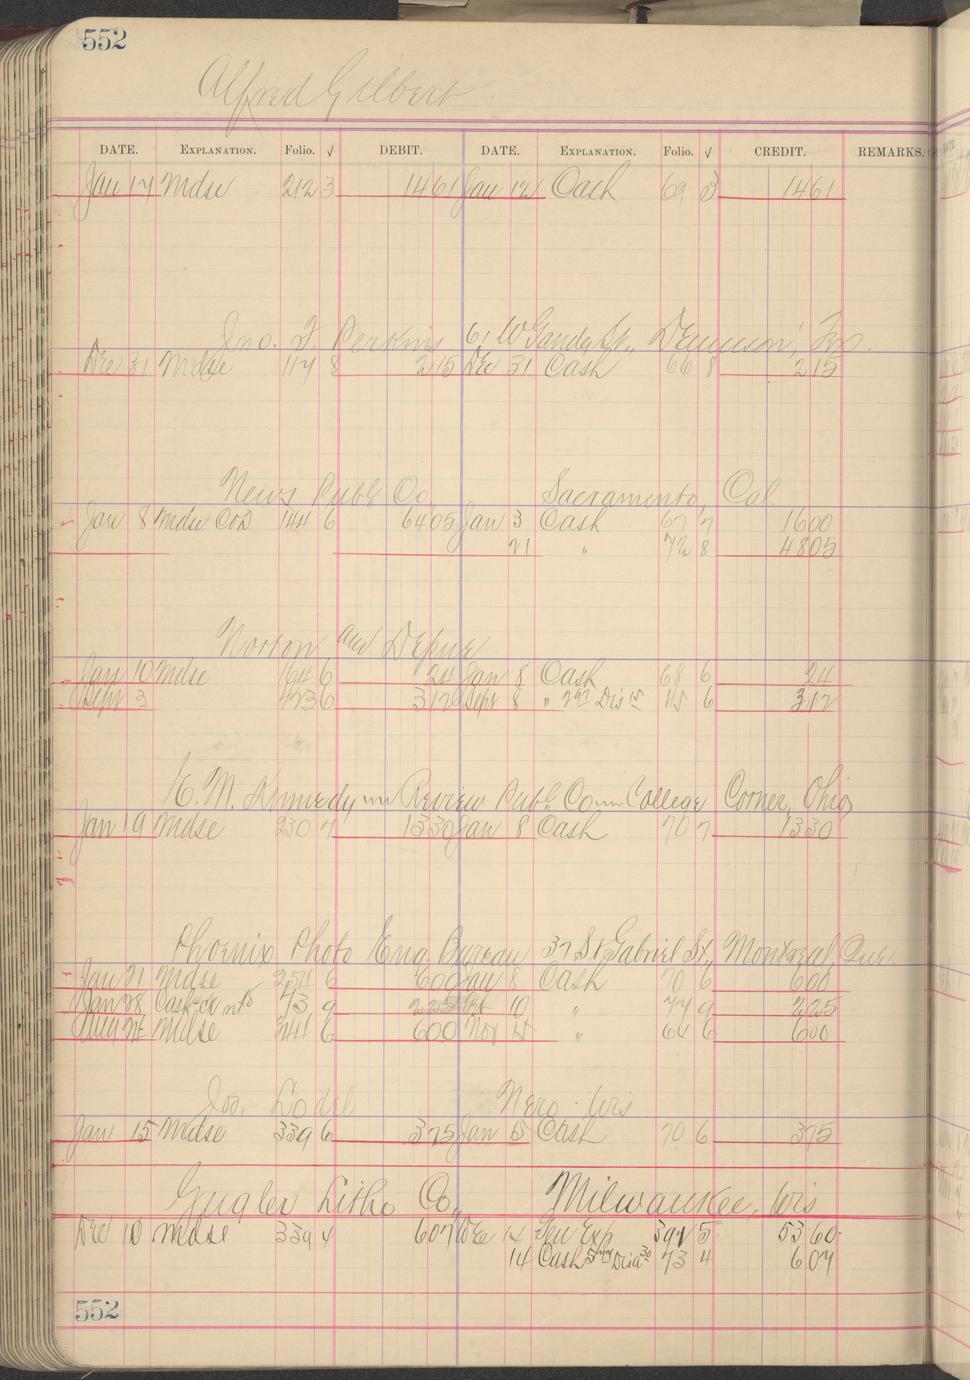 552
Alfred Gilbert
DATE. EXPLANATION. Folio. √ DEBIT. DATE. EXPLANATION. Folio. √ CREDIT. REMARKS.
Jan 17 Mdse 212 3 1461 Jan 12 Cash 69 3 1461
Jno. F. Perkins 61 W St., Dennison,
Dec 31 Mdse 117 8 215 Dec 31 Cash 66 8 215
News Publ Co. Sacramento, Cal.
Jan 8 Mdse COD 144 6 6405 Jan 3 Cash 67 7 1600
21 " 72 8 4805
Norton and Depue
Jan 10 Mdse 164 6 24 Jan 8 Cash 68 6 24
Sept 3 473 6 312 Sept 8 " Dis 45 6 312
E. M. Kennedy Review Publ Co College Corner, Ohio
Jan 19 Mdse 230 7 1330 Jan 8 Cash 70 7 1330
Phoenix Photo Eng. Bureau 37 St Gabriel St., Montreal Que.
Jan 21 Mdse 251 6 600 Jan 8 Cash 70 6 600
Jan 28 Cash 43 9 225 10 " 77 9 225
Aug Mdse 341 6 600 Nov 15 " 64 6 600
Jos. Lodel Nero Wis
Jan 15 Mdse 339 6 375 Jan 15 Cash 70 6 375
Gugler Litho Co., Milwaukee, Wis
Dec 10 Mdse 339 4 607 Dec 14 Gen Exp 391 5 53 60
14 Cash 73 4 607
552